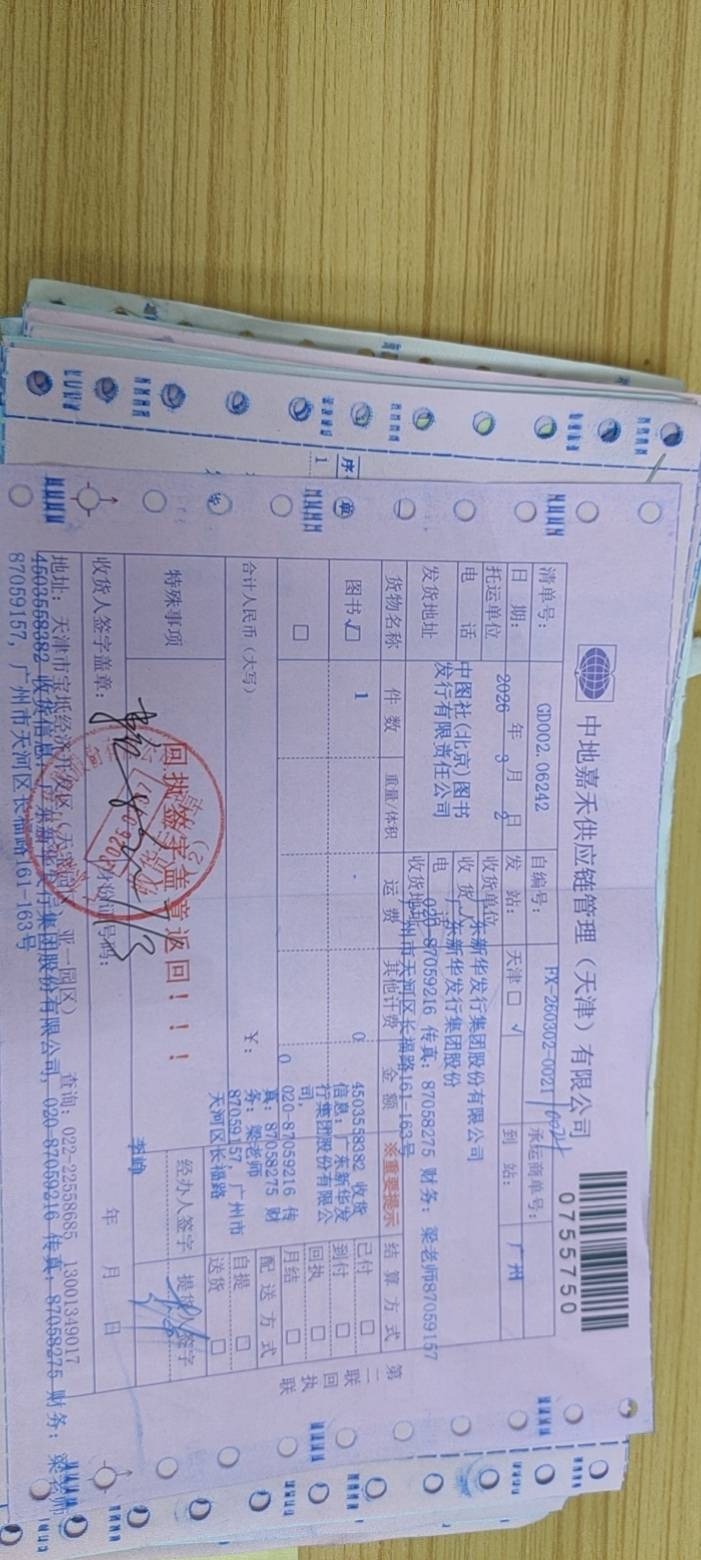 中地嘉禾供应链管理（天津）有限公司
0755750
清单号： GD002.06242 自编号： FX-260302-0021 承运商单号：
日 期： 2026 年 3 月 2 日 发 站： 天津 □ √ 到 站： 广州
托运单位 中图社(北京)图书发行有限责任公司 收货单位 广东新华发行集团股份有限公司
电 话 收 货 人 广东新华发行集团股份
电 话 020-87059216 传真：87058275 财务：梁老师87059157
发货地址 收货地址 广州市天河区长福路161-163号
货物名称 件 数 重量/体积 运 费 其他计费 金 额 ※重要提示 结 算 方 式
图书 √□ 1 0
□ 0
4503558382 收货
信息：广东新华发
行集团股份有限公
司,
020-87059216 传
真：87058275 财
务：梁老师
87059157，广州市
天河区长福路
已付 □
到付 □
回执 □
月结 □
配 送 方 式
自提 □
送货 □
合计人民币（大写） ￥：
特殊事项 回执签字盖章返回！！！
经办人签字 提货人签字
李帅
收货人签字盖章： 身份证号码： 年 月 日
地址：天津市宝坻经济开发区（天宝工业园区） 查询：022-22558685 13001349017
4503558382 收货信息：广东新华发行集团股份有限公司，020-87059216 传真：87058275 财务：梁老师
87059157，广州市天河区长福路161-163号
第二联 回执联
序
1